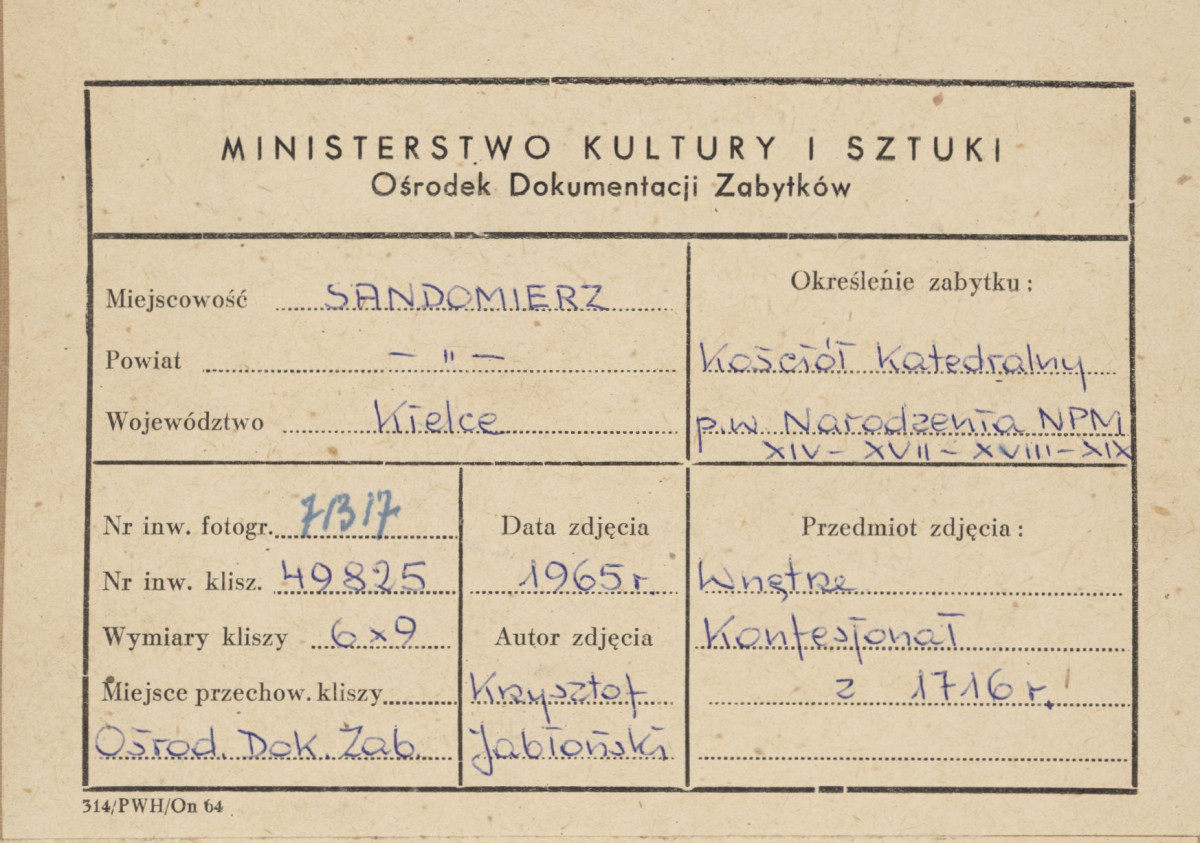 MINISTERSTWO KULTURY I SZTUKI
Ośrodek Dokumentacji Zabytków
Miejscowość SANDOMIERZ
Powiat — " —
Województwo Kielce
Określenie zabytku:
Kościół Katedralny
p.w Narodzenia NPM
XIV – XVII – XVIII – XIX
Nr inw. fotogr. 71317
Nr inw. klisz. 49825
Wymiary kliszy 6x9
Miejsce przechow. kliszy
Ośrod. Dok. Zab.
Data zdjęcia
1965 r.
Autor zdjęcia
Krzysztof
Jabłoński
Przedmiot zdjęcia:
Wnętrze
Konfesjonał
z 1716 r.
314/PWH/On 64